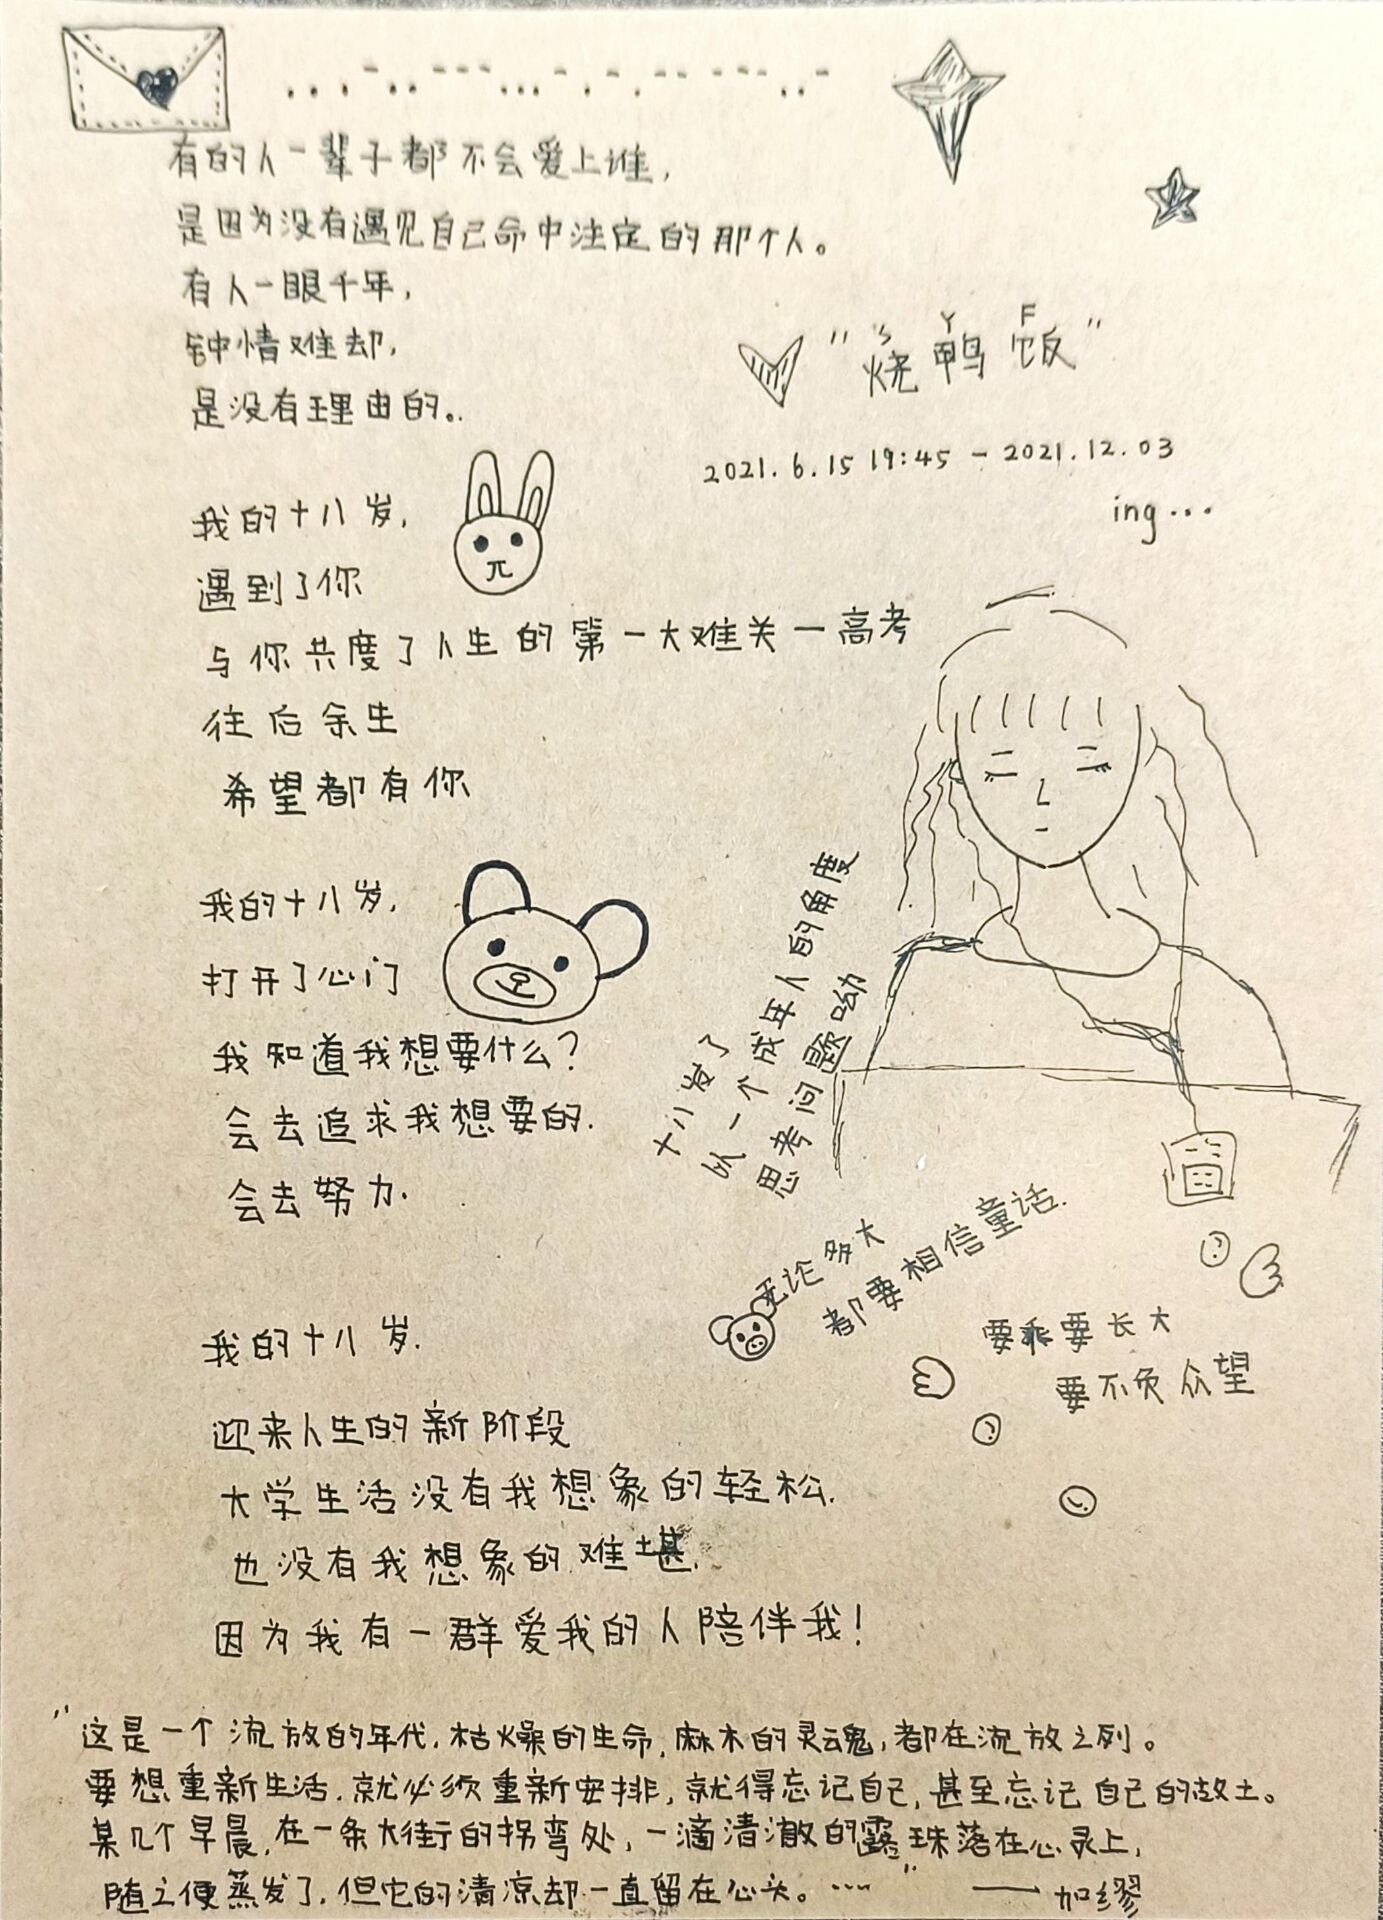 ...-..---...-.-.-----..-
有的人一辈子都不会爱上谁，
是因为没有遇见自己命中注定的那个人。
有人一眼千年，
钟情难却，
是没有理由的。
S Y F
"烧鸭饭"
2021.6.15 19:45 - 2021.12.03
ing...
我的十八岁，
遇到了你
与你共度了人生的第一大难关一高考
往后余生
希望都有你
我的十八岁，
打开了心门
我知道我想要什么？
会去追求我想要的.
会去努力.
十八岁了
以一个成年人的角度
思考问题呦
无论多大
都要相信童话.
要乖要长大
要不负众望
我的十八岁.
迎来人生的新阶段
大学生活没有我想象的轻松.
也没有我想象的难堪.
因为我有一群爱我的人陪伴我！
"这是一个流放的年代，枯燥的生命，麻木的灵魂，都在流放之列。
要想重新生活，就必须重新安排，就得忘记自己，甚至忘记自己的故土。
某几个早晨，在一条大街的拐弯处，一滴清澈的露珠落在心灵上，
随之便蒸发了，但它的清凉却一直留在心头。……" ——加缪